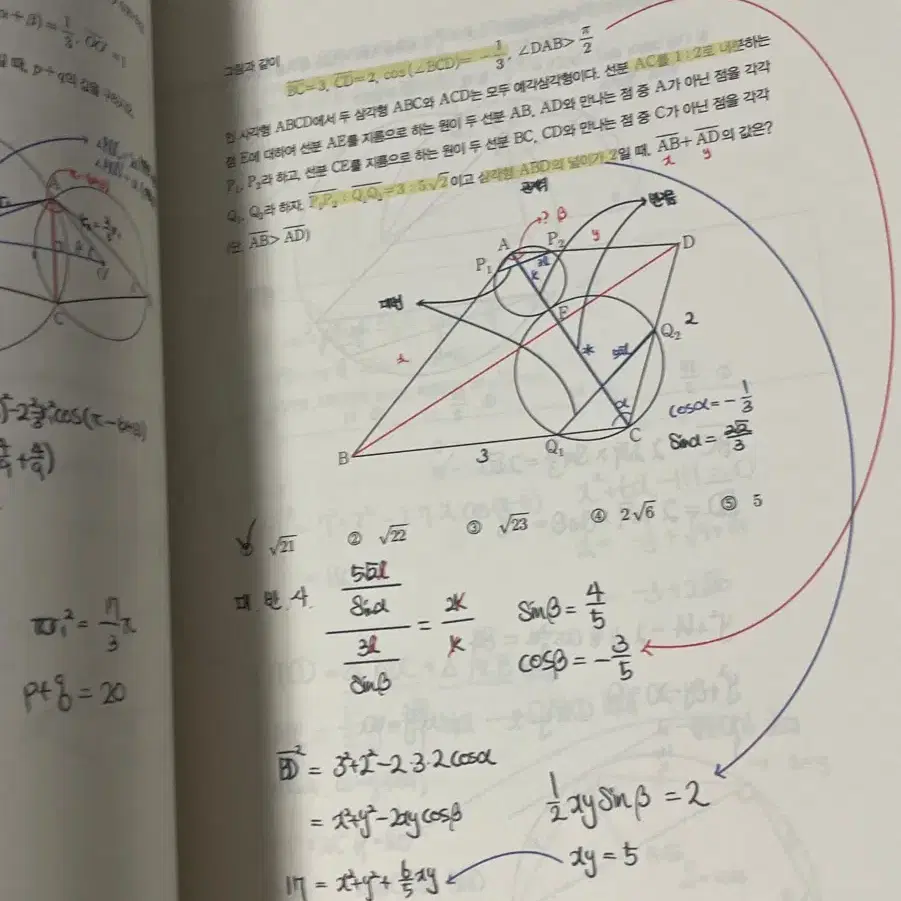 그림과 같이
BC=3, CD=2, cos(∠BCD)=-1/3, ∠DAB>π/2
인 사각형 ABCD에서 두 삼각형 ABC와 ACD는 모두 예각삼각형이다. 선분 AC를 1:2로 내분하는
점 E에 대하여 선분 AE를 지름으로 하는 원이 두 선분 AB, AD와 만나는 점 중 A가 아닌 점을 각각
P₁, P₂라 하고, 선분 CE를 지름으로 하는 원이 두 선분 BC, CD와 만나는 점 중 C가 아닌 점을 각각
Q₁, Q₂라 하자. P₁P₂ : Q₁Q₂=3 : 5√2이고 삼각형 ABD의 넓이가 2일 때, AB+AD의 값은?
x y
(단, AB>AD)
반지름
A ? β P₂ y D
P₁
k
대변
E
Q₂ 2
x
α
B 3 Q₁ C
cosα=-1/3
sinα=2√2/3
√21 ② √22 ③ √23 ④ 2√6 ⑤ 5
5√2l/sinα / 3l/sinβ = 2k/k
sinβ=4/5
cosβ=-3/5
BD²=3²+2²-2·3·2cosα
=x²+y²-2xycosβ
17=x²+y²+6/5xy
1/2xysinβ=2
xy=5
p+q=20